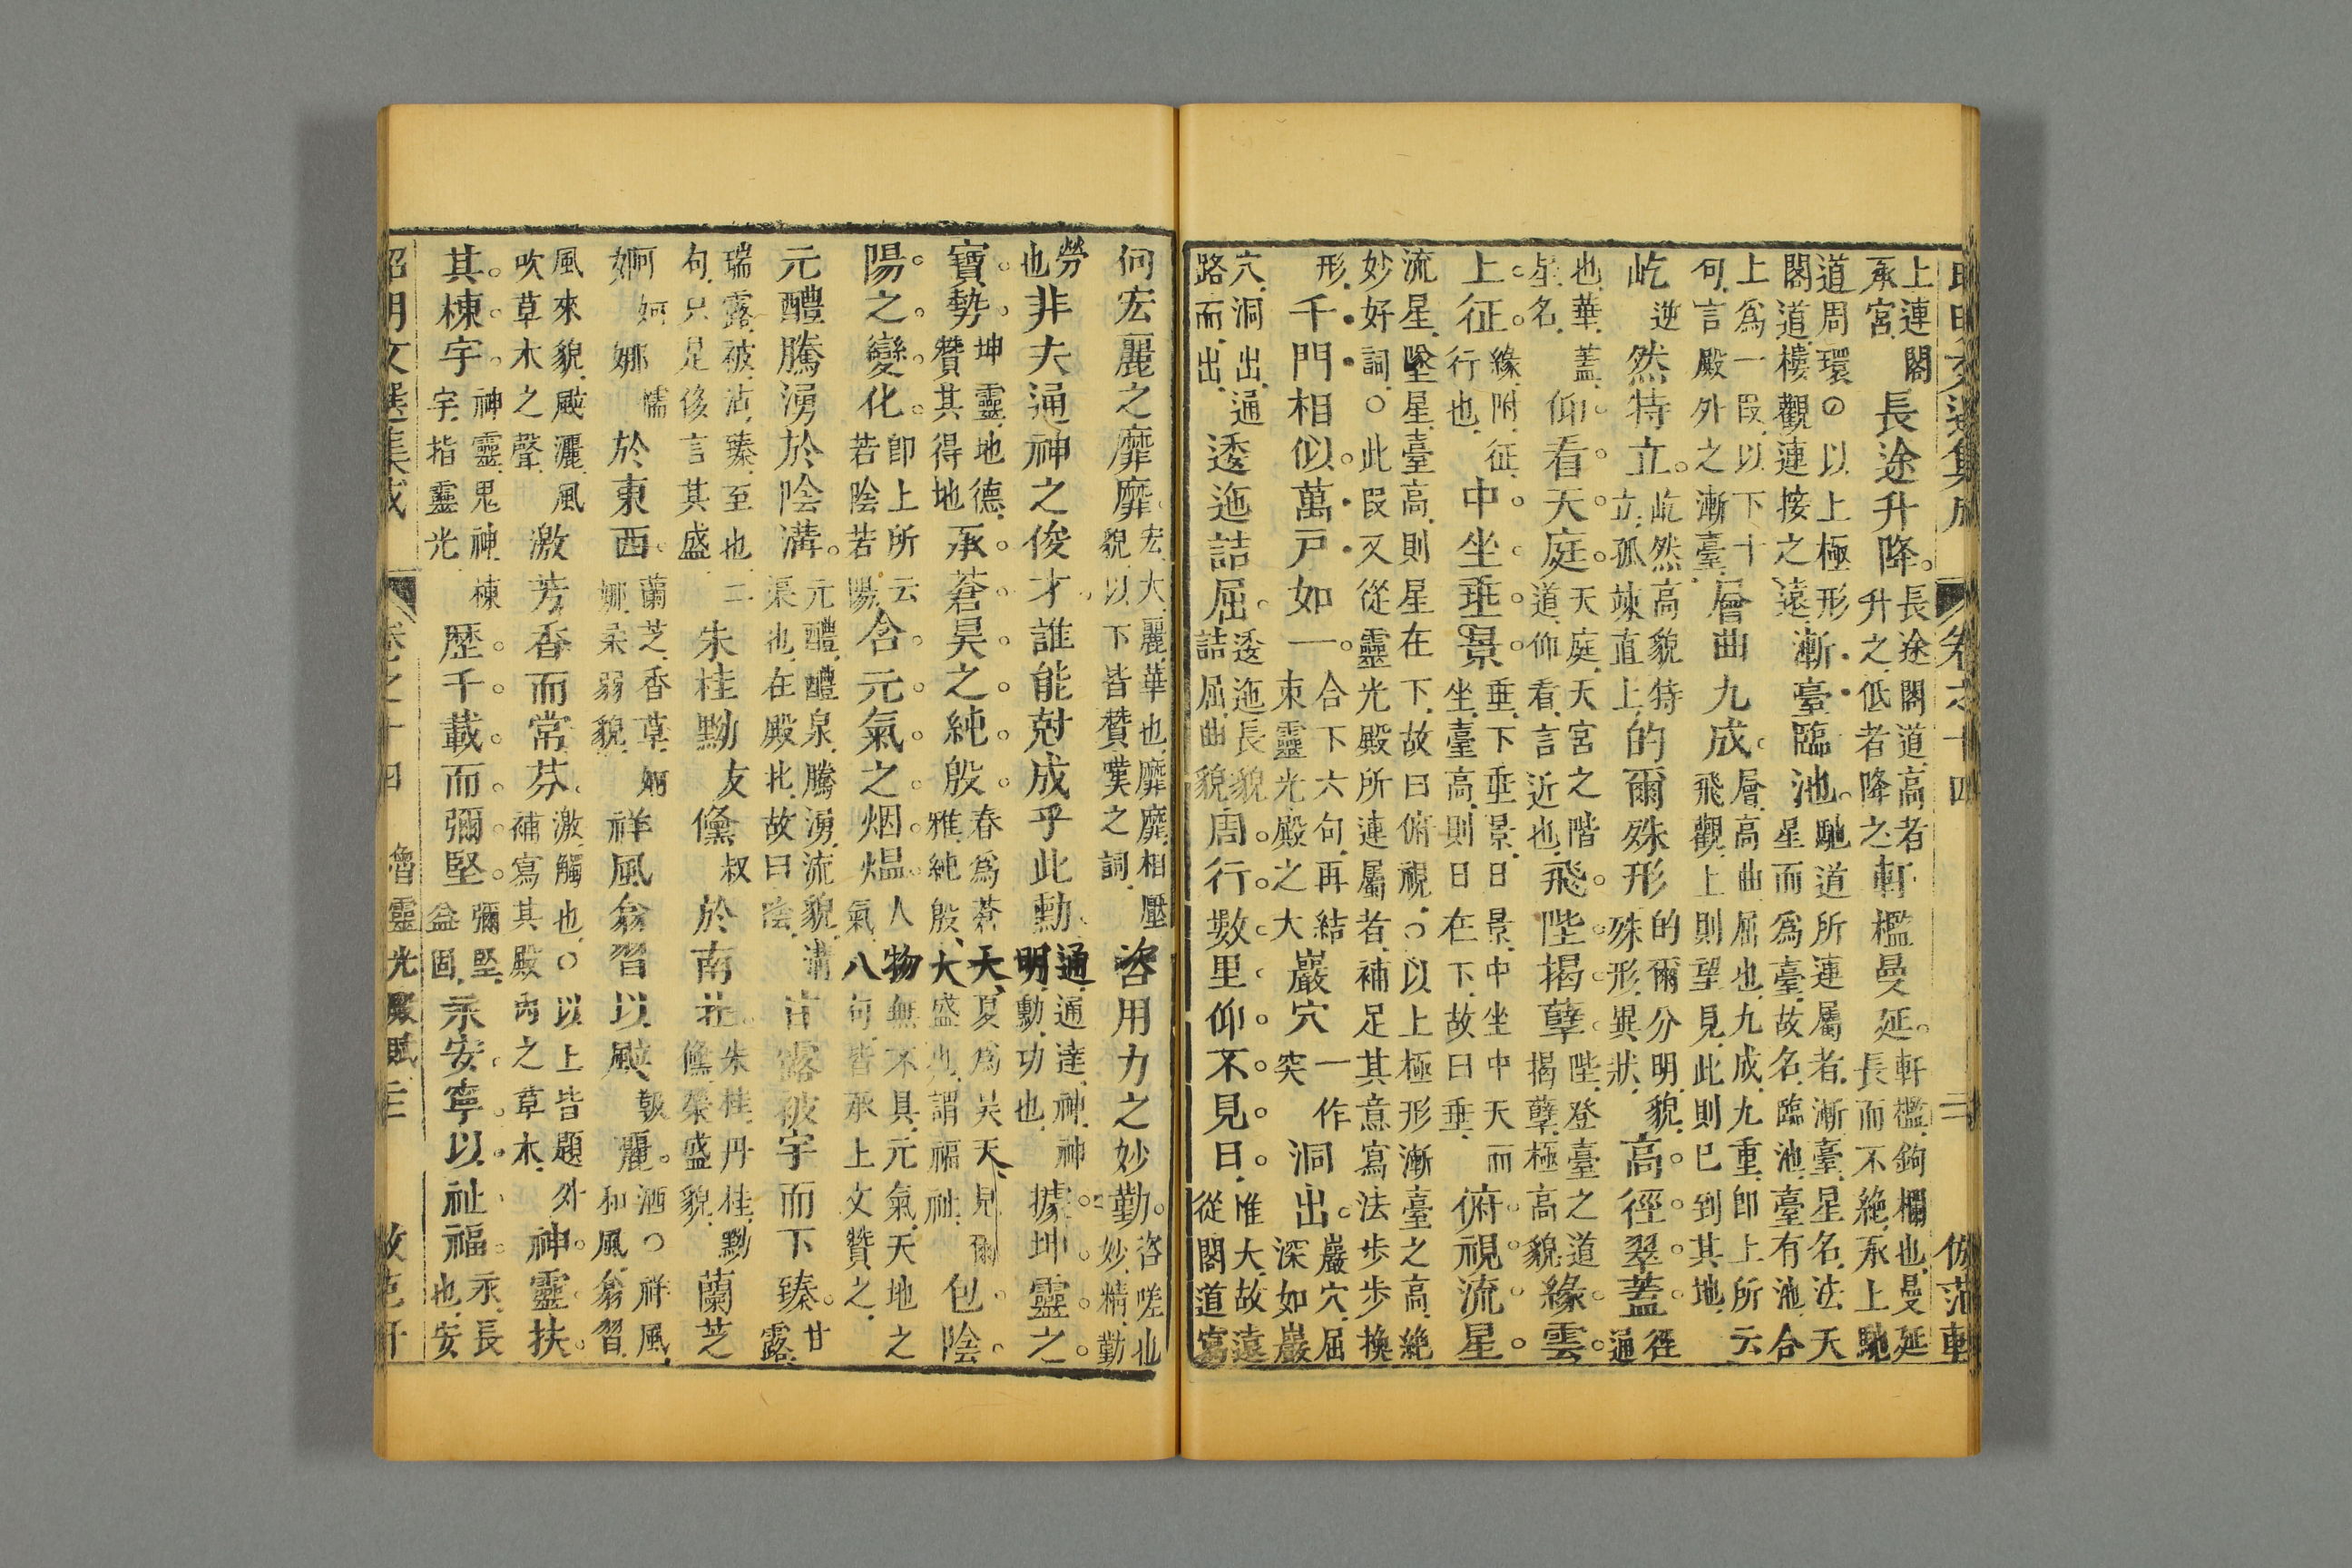 昭明文選集成 卷之十四 二 倣范軒
上連閣承宮長途升降。長途閣道高者升之低者降之軒檻曼延。軒檻鉤欄也曼延長而不絶承上馳
道周環○以上極形閣道樓觀連接之遠漸臺臨池。馳道所連屬者漸臺星名法天星而爲臺故名臨池臺有池合
上爲一叚以下十句言殿外之漸臺層曲九成。層高曲屈也九成九重卽上所云飛觀上則望見此則已到其地
屹逆然特立。屹然高貌特立孤竦直上的爾殊形的爾分明貌殊形異狀高徑翠蓋。徑通
也華蓋星名仰看天庭。天庭天宮之階道仰看言近也飛陛揭孽。陛登臺之道揭孽極高貌緣雲
上征。緣附征行也中坐垂景。垂下垂景日景中坐中天而坐臺高則日在下故曰垂俯視流星。
流星墜星臺高則星在下故曰俯視○以上極形漸臺之高絶妙好詞○此叚又從靈光殿所連屬者補足其意寫法步步換
形千門相似。萬戸如一。合下六句再結束靈光殿之大巖穴一作突洞出。巖穴屈深如巖
穴洞出通路而出逶迤詰屈。逶迤長貌詰屈曲貌周行數里。仰不見日。惟大故遠從閣道寫
何宏麗之靡靡。宏大麗華也靡靡相壓貌以下皆贊嘆之詞咨用力之妙勤。咨嗟也妙精勤
勞也非夫通神之俊才。誰能尅成乎此勳。通通達神神明勳功也據坤靈之。
寶勢。坤靈地德贊其得地承蒼昊之純殷。春爲蒼天夏爲昊天見爾雅純殷大盛也謂福祉包陰。
陽之變化。卽上所云若陰若陽含元氣之烟煴。人物無不具元氣天地之氣八句皆承上文贊之
元醴騰湧於陰溝。元醴醴泉騰湧流貌溝渠也在殿北故曰陰甘露被宇而下臻。甘露
瑞露被沾臻至也二句只是後言其盛朱桂黝友儵叔於南北。朱桂丹桂黝儵榮盛貌蘭芝
阿妸娜懦於東西。蘭芝香草妸娜柔弱貌祥風翕習以颯報麗。洒○祥風和風翕習
風來貌颯灑風吹草木之聲激芳香而常芬。激觸也○以上皆題外補寫其殿內之草木神靈扶。
其棟宇。神靈鬼神棟宇指靈光歷千載而彌堅。彌堅益固永安寧以祉福。永長也安
昭明文選集成 卷之十四 魯靈光殿賦 三 倣范軒